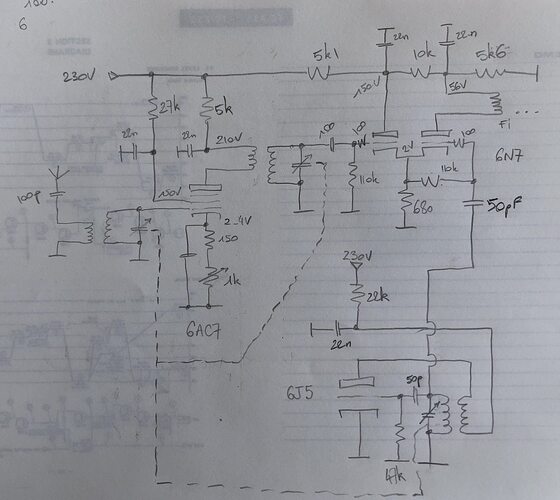 6
5k1
22n
10k
22n
5k6
230V
150V
56V
27k
5k
22n
22n
210V
Fi ...
100
100
2V
100
6N7
100p
150V
110k
110k
680
50pF
2_4V
150
1k
230V
22k
6AC7
22n
6J5
50p
47k